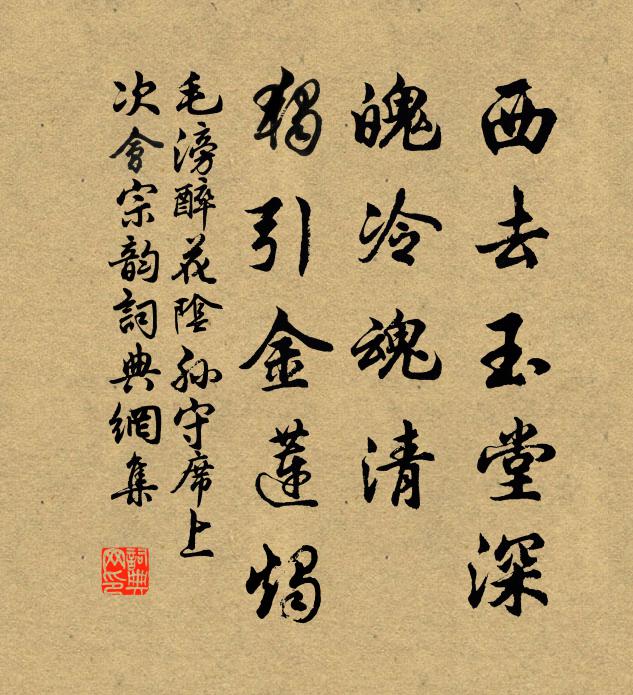 西去玉堂深
魄冷魂清
獨引金蓮燭
毛滂醉花陰孫守席上
次會宗韵詞典網集
詞典网印